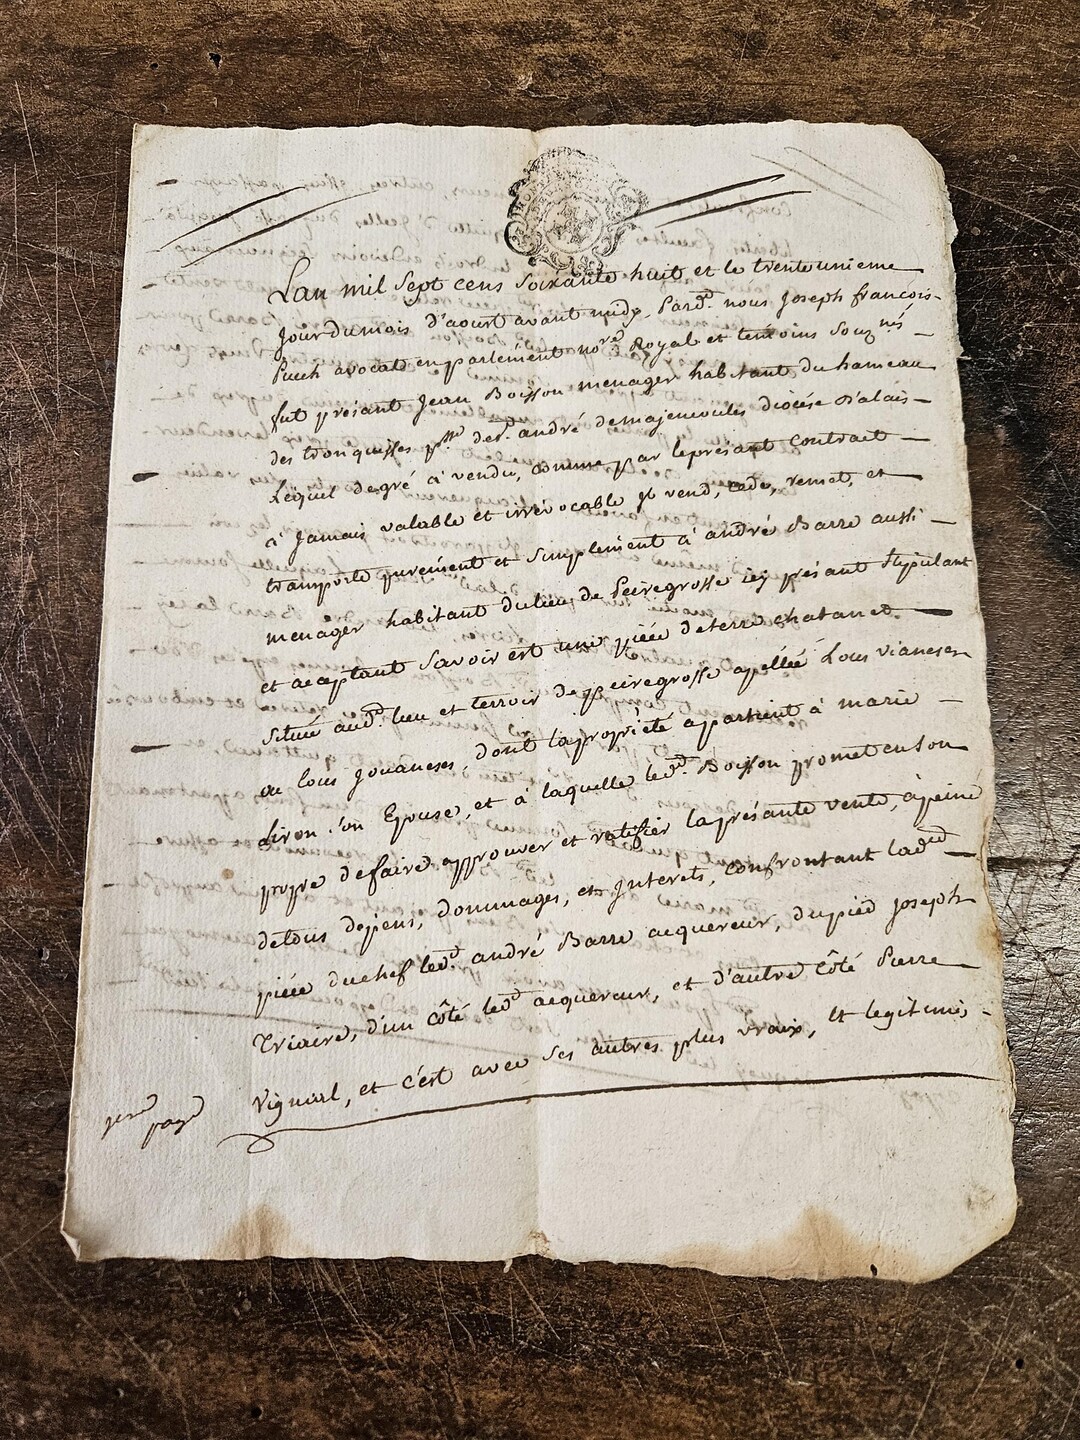 Lan mil sept cens soixante huit et le trente unieme
jour du mois d'aourt avant midy. Pard.t nous Joseph françois
Puech avocat en parlement no.re Royal et temoins souz.nés
fut présant Jean Boisson menager habitant du hameau
des tronquisses p.sse de s.t andré de majencoules diocése d'alais
Lequel de gré à vendu, comme par le présant Contract
à Jamais valable et irrévocable Jl vend, cede, remet, et
transporte purement et simplement à andré Barre aussi
menager habitant du lieu de Peiregrosse icy présant stipulant
et aceptant Savoir est une piéce de terre chatanet.
située aud.t lieu et terroir de peiregrosse apellée Lous vianeses
ou lous Jouaneses, dont la propriété apartient à marie
diron son Epouse, et à laquelle led.t Boisson promet en son
propre de faire approuver et ratifier la présante vente, à peine
de tous depens, dommages, et Jnterets, confrontant lad.te
piéce du chef led.t andré Barre acquereur, du pied Joseph
Triaire, d'un côté led.t acquereur, et d'autre côté Pierre
Vignial, et c'est avec ses autres plus vraix, et legitimes
page